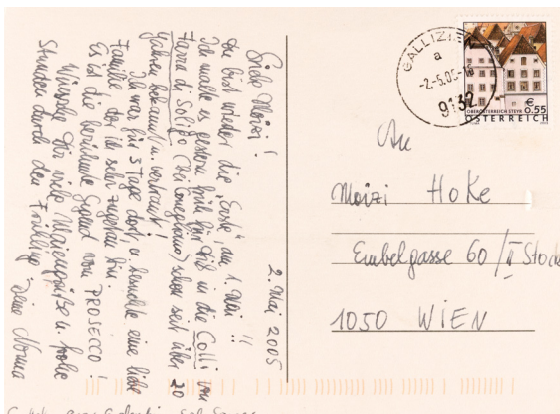 2. Mai 2005
Liebe Moizi!
Du bist wieder die "Erste" am 1. Mai!!
Ich malte es gestern früh für Dich in die Colli von
Farra di Soligo (bei Conegliano) schon seit über 20
Jahren bekannt u. vertraut!
Ich war für 3 Tage dort, u. besuchte eine liebe
Familie der ich sehr zugetan bin
Es ist die berühmte Gegend von PROSECCO!
Wünsche Dir viele Maiengrüße u. frohe
Stunden durch den Frühling
Deine Norma
GALLIZIEN
a
-2.-5.05-16
9132
€ 0.55
OBERÖSTERREICH STEYR
ÖSTERREICH
An
Moizi Hoke
Embelgasse 60/II Stock
1050 WIEN